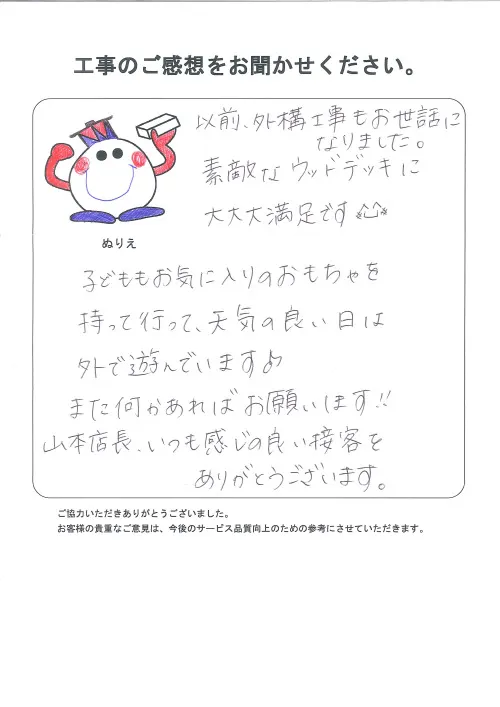 工事のご感想をお聞かせください。
以前、外構工事もお世話に
なりました。
素敵なウッドデッキに
大大大満足です
ぬりえ
子どももお気に入りのおもちゃを
持って行って、天気の良い日は
外で遊んでいます♪
また何かあればお願いします!!
山本店長、いつも感じの良い接客を
ありがとうございます。
ご協力いただきありがとうございました。
お客様の貴重なご意見は、今後のサービス品質向上のための参考にさせていただきます。